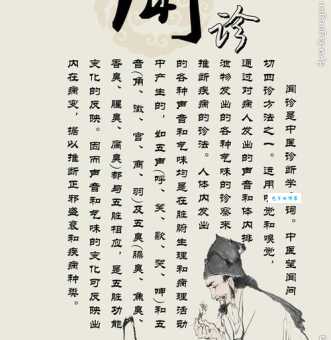 闻诊
闻诊是中医诊断学词。中医望闻问
切四诊方法之一。运用觉和嗅觉,
通过对病人发出的声音和体内排
泄物发出的各种气味的诊察来
推断疾病的诊法。人体内发出
的各种声音和气味均是在脏腑生理和病理活动
中产生的,如五声(呼、笑、歌、哭、呻)和五
音(角、徵、宫、商、羽)及五臭(臊臭、焦臭、
香臭、腥臭、腐臭)都与五脏相应,是五脏功能
变化的反映。因而声音和气味的变化可反映出
内在病变,据以推断正邪盛衰和疾病种类。